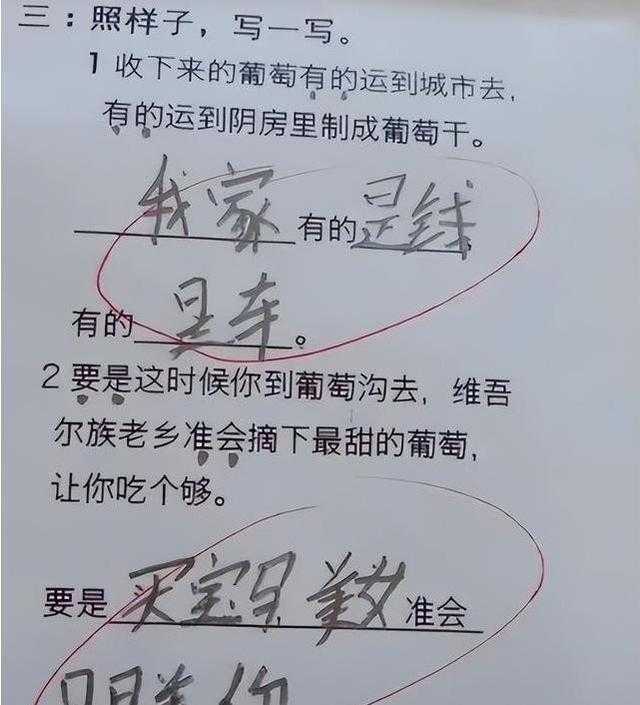 三：照样子，写一写。
1 收下来的葡萄有的运到城市去，
有的运到阴房里制成葡萄干。
我家有的是钱，
有的是车。
2 要是这时候你到葡萄沟去，维吾
尔族老乡准会摘下最甜的葡萄，
让你吃个够。
要是天宝马，美女准会
你